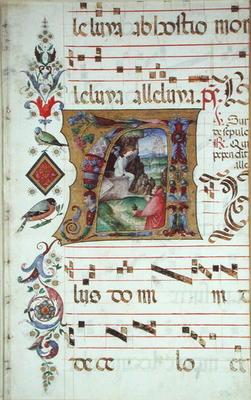 le luya ab hostio mon
le luya alle luya.
A
℣. Sur
de sepulc
℟. Qui
pependit
alle
lus do mi ni d
de ce lo et